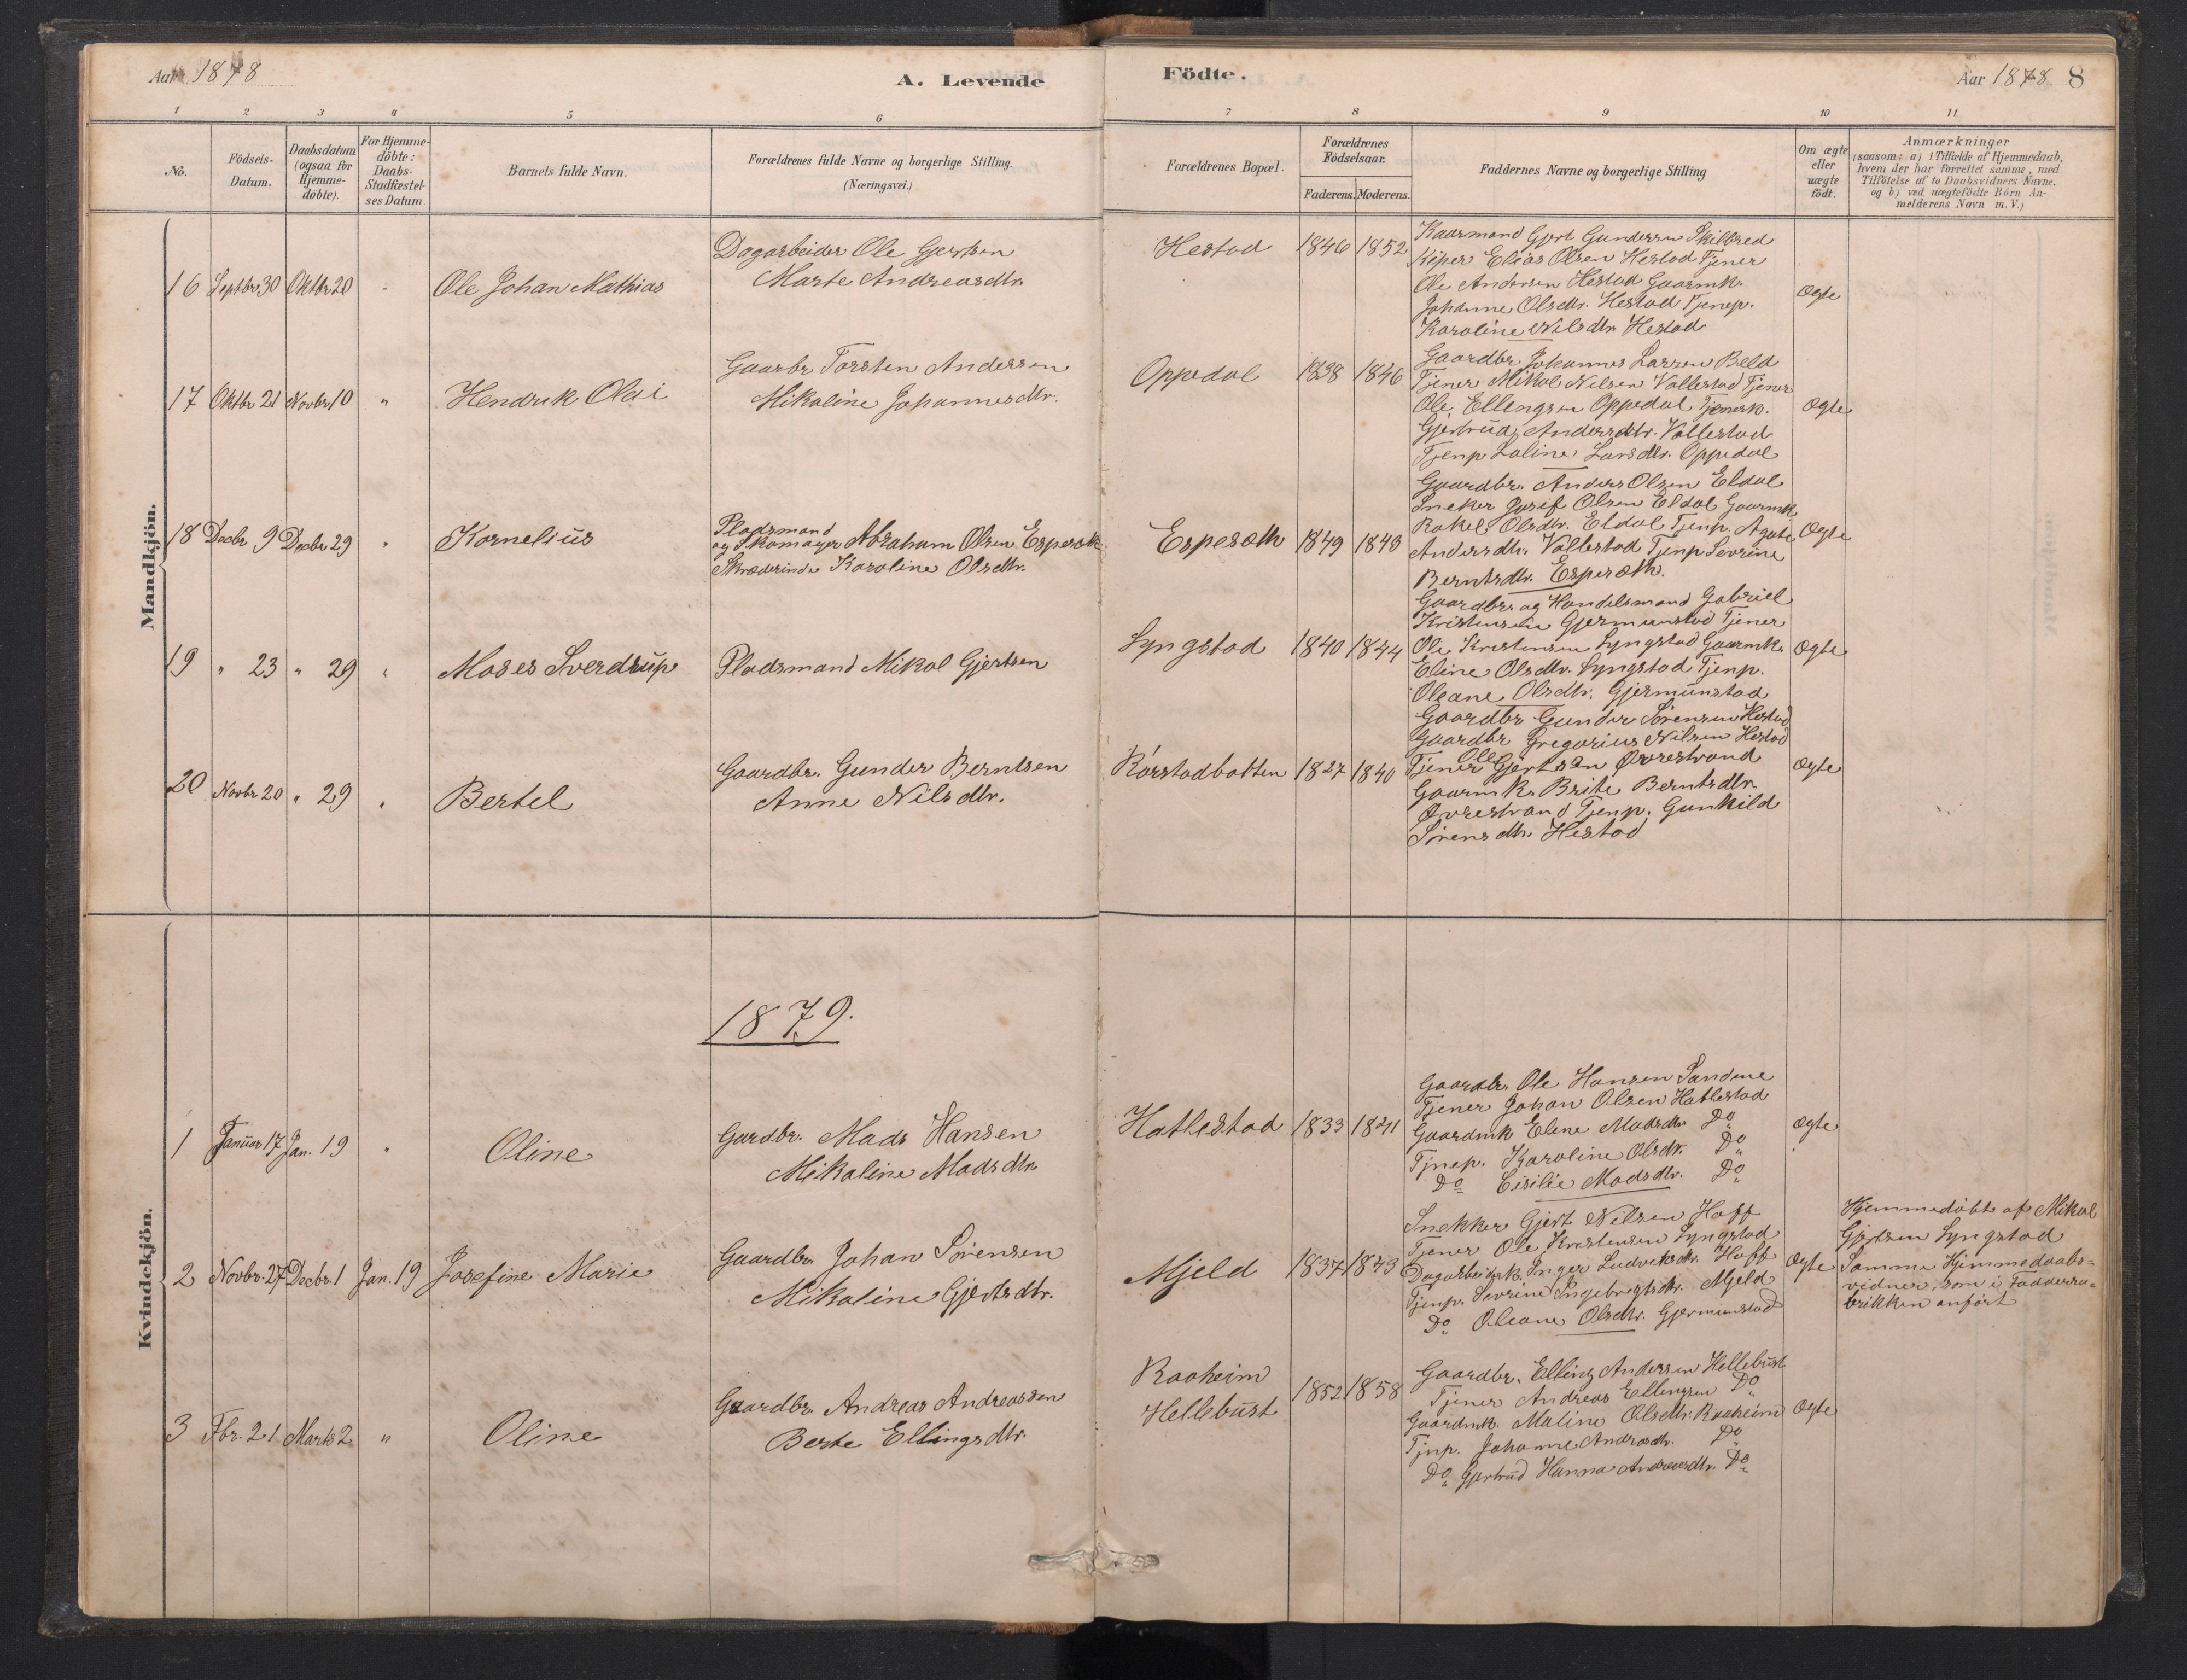 Aar 1878
A. Levende
Födte.
Aar 1878 8
1 2 3 4 5 6 7 8 9 10 11
No.
Födsels-
Datum.
Daabsdatum
(ogsaa for
Hjemme-
döbte).
For Hjemme-
döbte:
Daabs-
Stadfæstel-
ses Datum
Barnets fulde Navn.
Forældrenes fulde Navne og borgerlige Stilling
(Næringsvei.)
Forældrenes Bopæl.
Forældrenes
Födselsaar.
Faderens. Moderens.
Faddernes Navne og borgerlige Stilling
Om ægte
eller
uægte
födt.
Anmærkninger
(saasom: a) i Tilfælde af Hjemmedaab,
hvem der har forrettet samme, med
Tilföielse af to Daabsvidners Navne.
og b) ved uægtefödte Börn An-
melderens Navn m. V.)
Mandkjön.
16 Septbr 30 Oktbr 20 "
Ole Johan Mathias
Dagarbeider Ole Gjertsen
Marte Andreasdtr.
Hestad 1846 1852
Kaarmand Gjert Gundersen Skilbred
Kiper Elias Olsen Hestad Tjener
Ole Andersen Hestad Gaarmk.
Johanne Olsdtr. Hestad Tjenep.
Karoline Nilsdtr Hestad
Ægte
17 Oktbr 21 Novbr 10 "
Hendrik Olai
Gaarbr Torsten Andersen
Mikaline Johannesdtr.
Oppedal 1838 1846
Gaardbr. Johannes Larsen Beld
Tjener Mikal Nilsen Vallestad Tjener
Ole Ellingsen Oppedal Tjenesk.
Gjertrud Andersdtr. Vallestad
Tjenp Laline Larsdtr. Oppedal
Ægte
18 Decbr 9 Decbr 29 "
Kornelius
Pladsmand
og Skomager Abraham Olsen Espesæth
Skræderinde Karoline Olsdtr.
Espesæth 1849 1843
Gaardbr. Anders Olsen Eldal
Sneker Josef Olsen Eldal Gaarmk
Rakel Olsdtr. Eldal Tjenp. Agate
Andersdtr. Vallestad Tjenp Sevrine
Berntsdtr. Espesæth.
Ægte
19 " 23 " 29 "
Moses Sverdrup
Pladsmand Mikal Gjertsen
Lyngstad 1840 1844
Gaardbr. og Handelsmand Gabriel
Kristensen Gjermunstad Tjener
Ole Kristensen Lyngstad Gaarmk.
Eline Olsdtr. Lyngstad Tjenp.
Oleane Olsdtr. Gjermunstad
Ægte
20 Novbr 20 " 29 "
Bertel
Gaardbr. Gunder Berntsen
Anne Nilsdtr.
Rørstadbotten 1827 1840
Gaardbr Gunder Sørensen Hestad
Gaardbr Gregorius Nilsen Hestad
Tjener Ole Gjertsen Øvrestrand
Gaarmk. Brite Berntsdtr.
Øvrestrand Tjenp. Gunhild
Sørensdtr. Hestad
Ægte
1879.
Kvindekjön.
1 Januar 17 Jan. 19 "
Oline
Gardbr. Mads Hansen
Mikaline Madsdtr.
Hatlestad 1833 1841
Gaardbr. Ole Hansen Sandene
Tjener Johan Olsen Hatlestad
Gaardmk Elene Madsdtr Do
Tjnep. Karoline Olsdtr. Do
Do Cisilie Madsdtr. Do
Ægte
2 Novbr. 27 Decbr. 1 Jan. 19
Josefine Marie
Gaardbr. Johan Sørensen
Mikaline Gjertsdtr.
Mjeld 1837 1843
Snekker Gjert Nilsen Hoff
Tjener Ole Kristensen Lyngstad
Dagarbeidsk. Inger Ludviksdtr. Hoff
Tjenp. Sevrine Ingebrigtsdtr. Mjeld
Do Oleane Olsdtr. Gjermunstad
Ægte
Hjemmedøbt af Mikal
Gjertsen Lyngstad
Samme Hjemmedaabs-
vidner, som i Fadderru-
brikken anført
3 Fbr. 21 Marts 2 "
Oline
Gaardbr. Andreas Andreassen
Berte Ellingsdtr.
Raaheim
Hellebust
1852 1858
Gaardbr. Elling Andersen Hellebust
Tjener Andreas Ellingsen Do
Gaardmk. Maline Olsdtr. Raaheim
Tjnp. Johanne Andrasdtr. Do
Do Gjertrud Hanna Andreasdtr. Do
Ægte